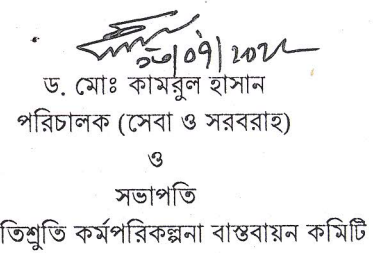 ড. মোঃ কামরুল হাসান
পরিচালক (সেবা ও সরবরাহ)
ও
সভাপতি
তিশ্রুতি কর্মপরিকল্পনা বাস্তবায়ন কমিটি